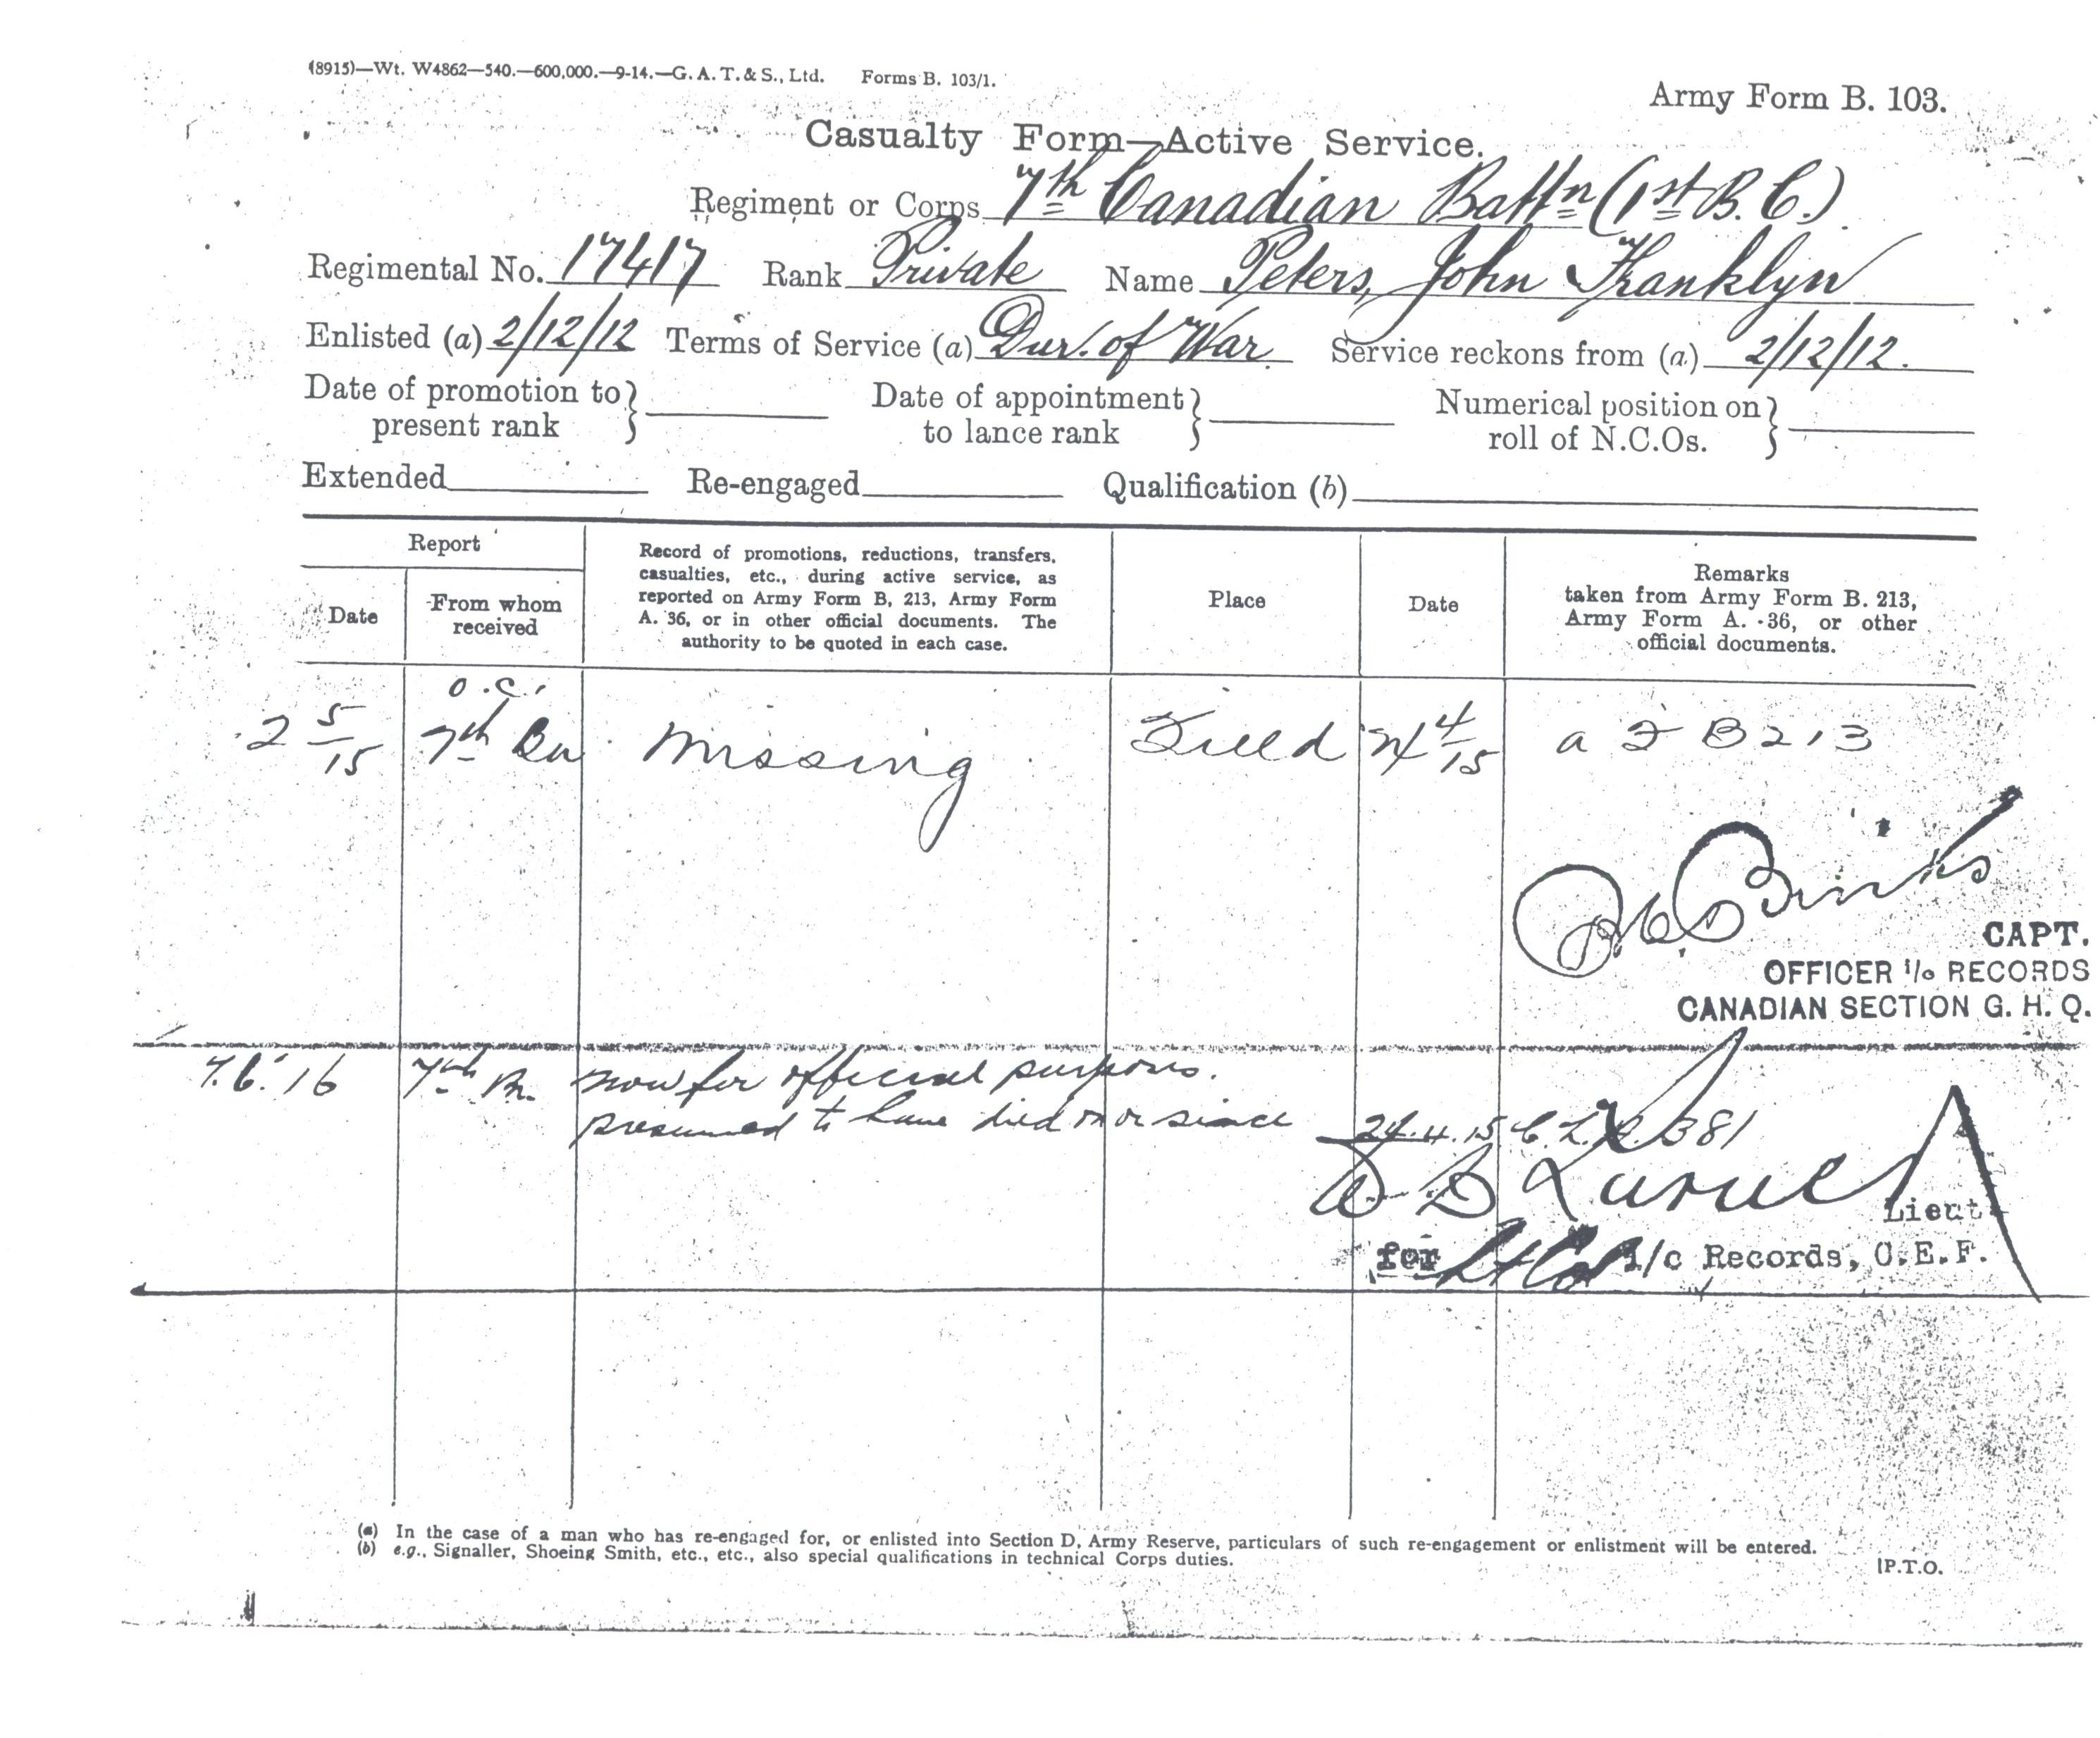 (8915)—Wt. W4862—540.—600,000.—9-14.—G. A. T. & S., Ltd. Forms B. 103/1.
Army Form B. 103.
Casualty Form—Active Service.
Regiment or Corps 7th Canadian Battn (1st B.C.)
Regimental No. 17417 Rank Private Name Peters, John Franklyn
Enlisted (a) 2/12/12 Terms of Service (a) Dur. of War. Service reckons from (a) 2/12/12.
Date of promotion to } Date of appointment } Numerical position on }
present rank to lance rank roll of N.C.Os.
Extended Re-engaged Qualification (b)
Report
Date
From whom
received
Record of promotions, reductions, transfers,
casualties, etc., during active service, as
reported on Army Form B. 213, Army Form
A. 36, or in other official documents. The
authority to be quoted in each case.
Place
Date
Remarks
taken from Army Form B. 213,
Army Form A. 36, or other
official documents.
O.C.
2 5/15 7th Bn Missing Field 24 4/15 a F B 213
CAPT.
OFFICER I/o RECORDS
CANADIAN SECTION G. H. Q.
7.6.16 7th Bn. now for official purposes.
presumed to have died on or since 24.4.15 381
Lieut
for Lt Col I/c Records, C.E.F.
(a) In the case of a man who has re-engaged for, or enlisted into Section D, Army Reserve, particulars of such re-engagement or enlistment will be entered.
(b) e.g., Signaller, Shoeing Smith, etc., etc., also special qualifications in technical Corps duties.
[P.T.O.